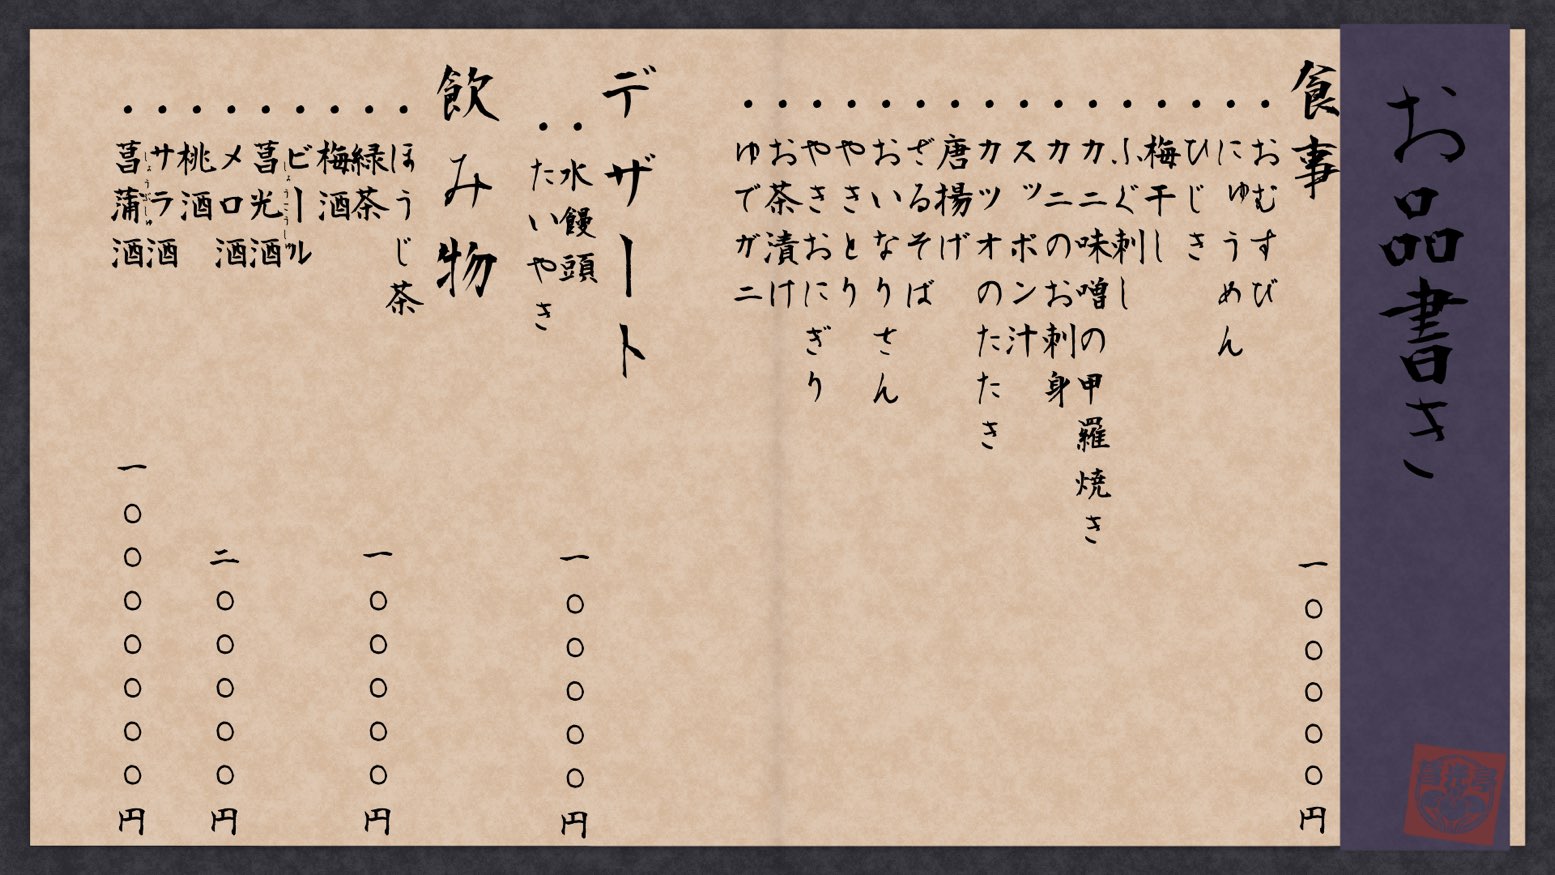 お品書き
食事
一〇〇〇〇〇円
・おむすび
・にゅうめん
・ひじき
・梅干し
・ふぐ刺し
・カニ味噌の甲羅焼き
・カニのお刺身
・スッポン汁
・カツオのたたき
・唐揚げ
・ざるそば
・おいなりさん
・やきとり
・やきおにぎり
・お茶漬け
・ゆでガニ
デザート
・水饅頭
一〇〇〇〇〇円
・たいやき
飲み物
・ほうじ茶
・緑茶
一〇〇〇〇〇円
・梅酒
・ビール
しょうこうしゅ
・菖光酒
・メロ酒
二〇〇〇〇〇円
・桃酒
・サラ酒
しょうぶしゅ
・菖蒲酒
一〇〇〇〇〇〇〇円